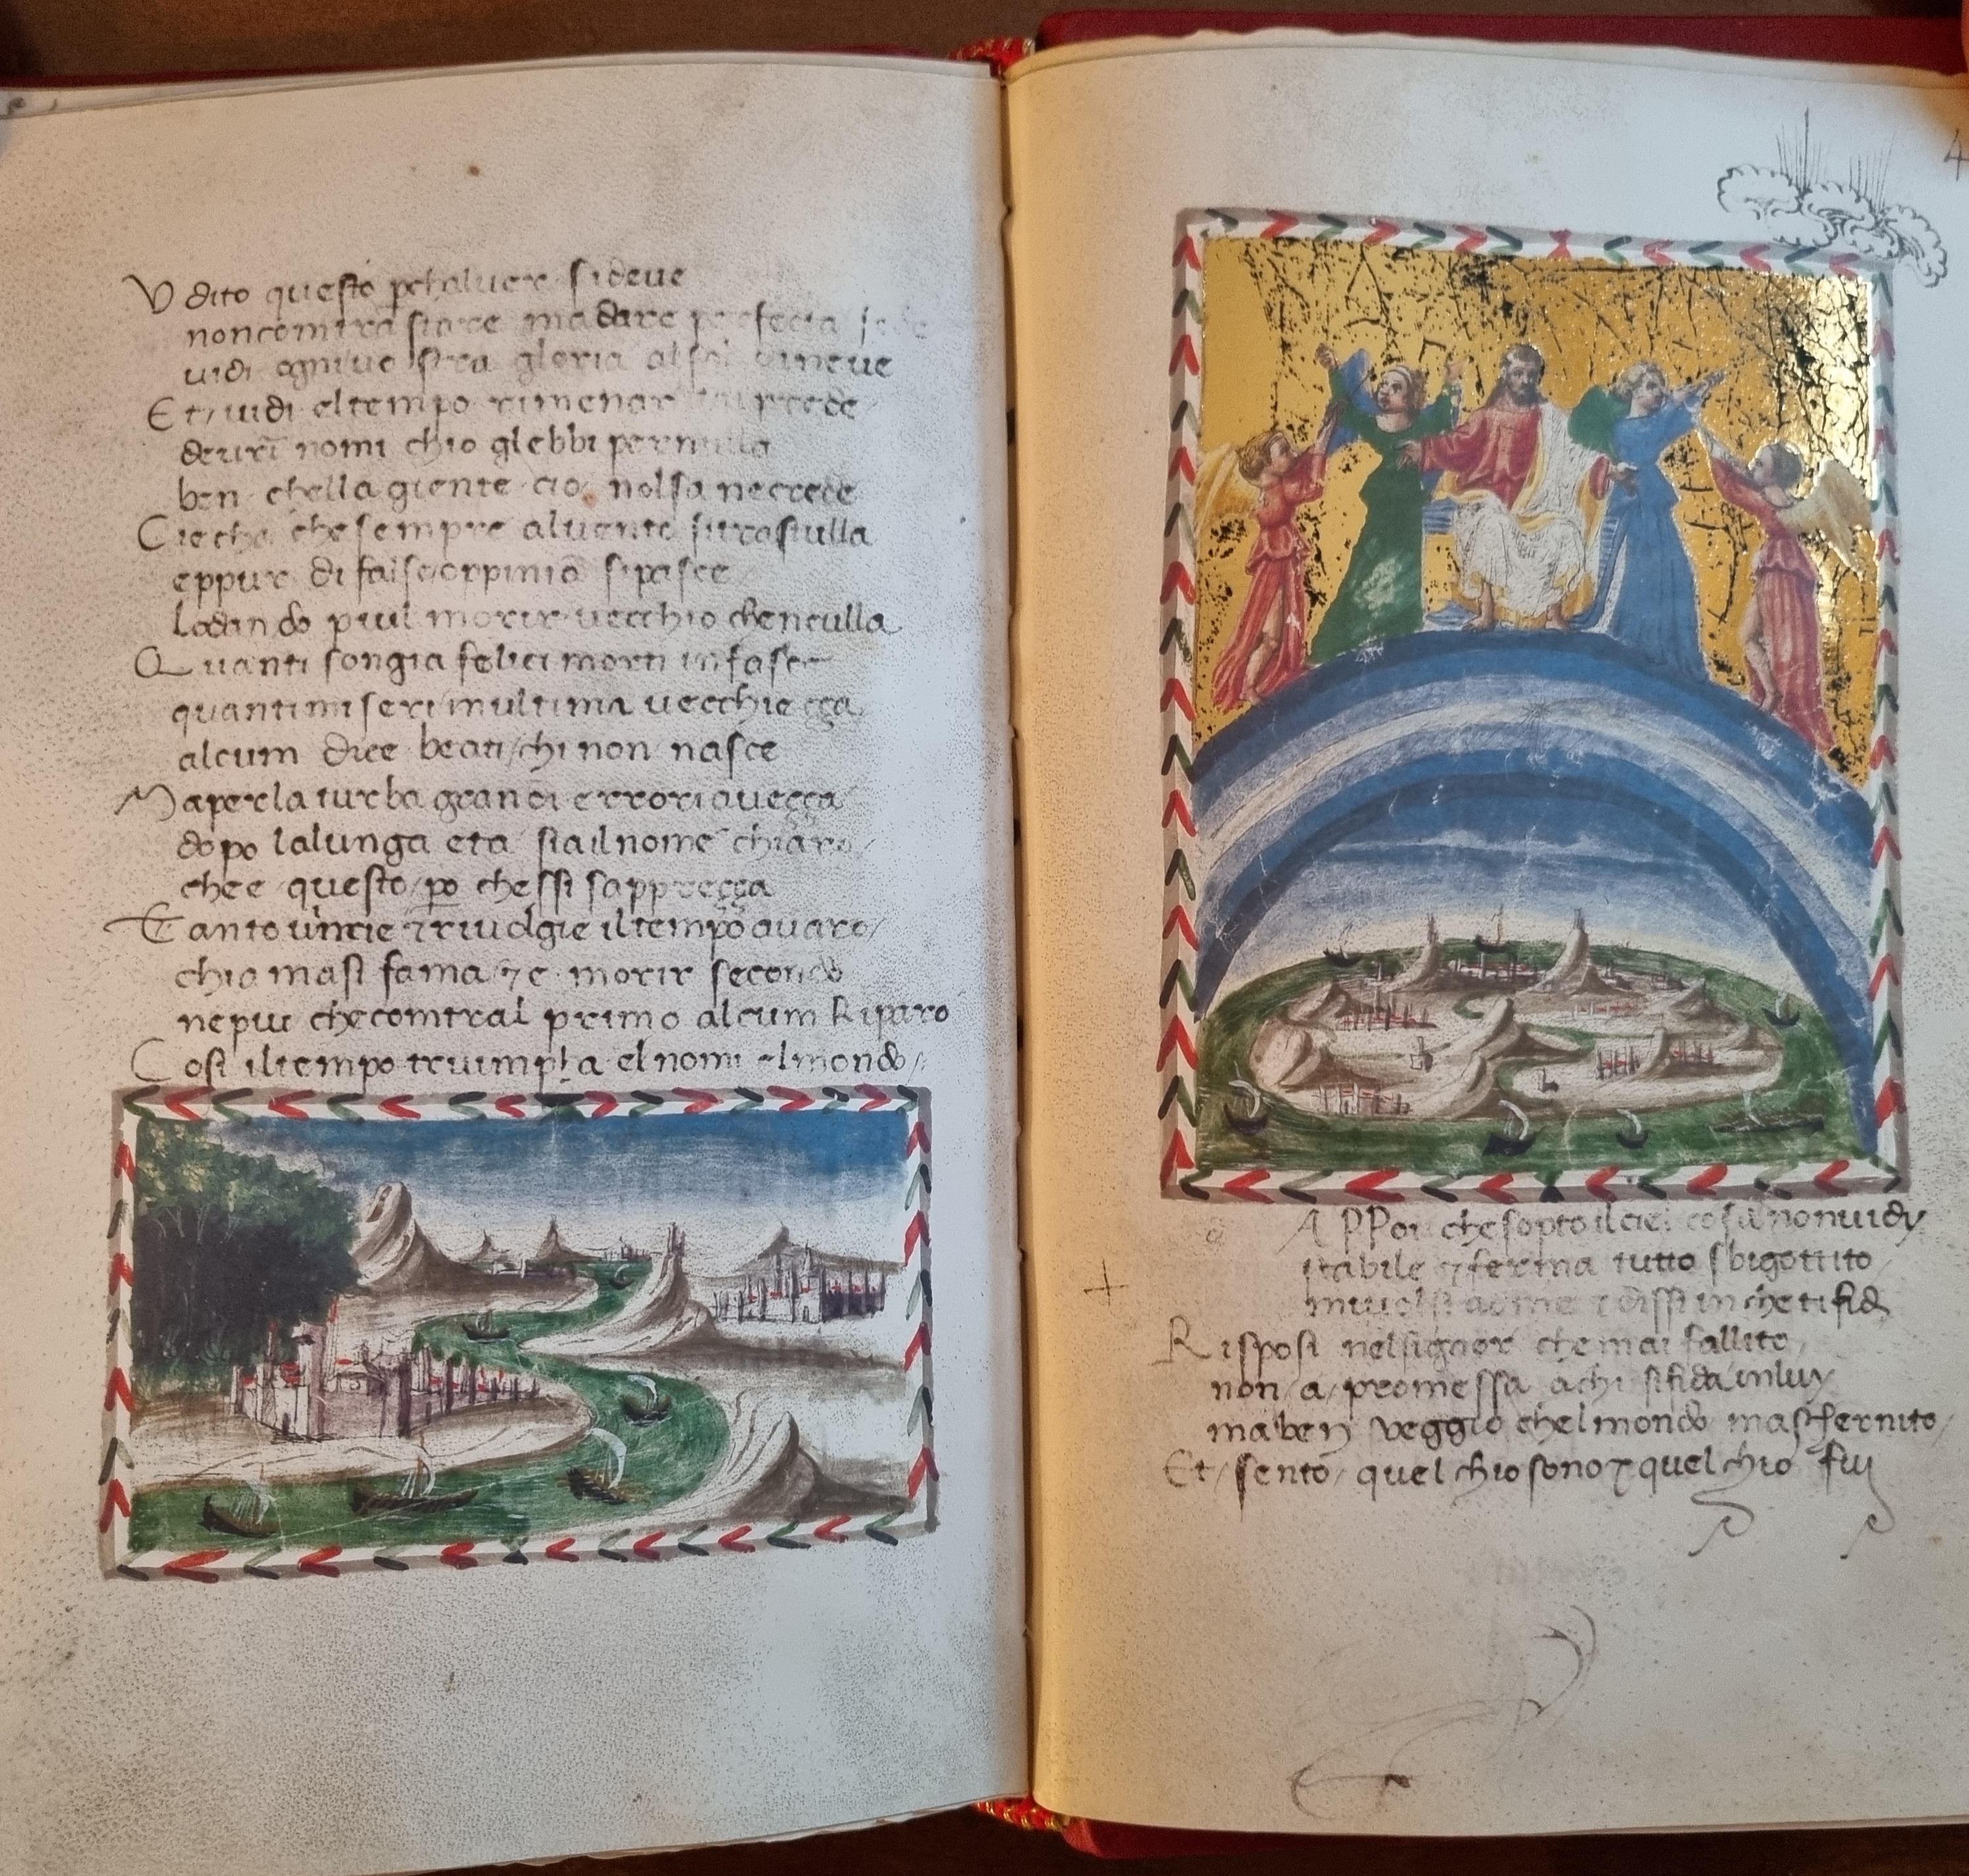 Udito questo p̱chaluere sideue
noncomtrastare ma dare perfecta fede
uidi ogniuostra gloria alsol dineue
Et/uidi eltempo rimenar tai prede
deurī nomi chio glebbi pernulla
ben chella giente cio nolsa necrede
Ciecha che sempre aluento sitrastulla
eppur di false oppinio sipasce
lodando piul morir uecchio chenculla
Quanti songia felici morti infasce
quanti miseri inultima uecchieçça
alcum dice beati/chi non nasce
Maperla turba grandi errori aueçça
dopo lalunga eta siailnome chiaro
che e questo po chessi sappreçça
Tanto uincie ⁊ riuolgie iltempo auaro/
chiamasi fama ⁊ e morir secondo
nepiu checomtral primo alcum Riparo
Cosi iltempo triumpha el nomi elmondo/
4
APPoi chesopto ilciel cosa nonuidy
stabile ⁊ ferma tutto sbigottito
miuolsi ad me ⁊ dissi in che ti fidi
Risposi nelsignor che mai fallito
non/a/promessa achi sifida inluy
maben veggio chelmondo maschernito/
Et/sento/quel chio sono ⁊ quel chio fuj